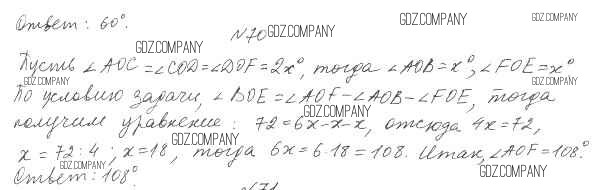 Ответ: 60°.
№70
Пусть ∠AOC = ∠COD = ∠DOF = 2x°, тогда ∠AOB = x°, ∠FOE = x°
По условию задачи, ∠BOE = ∠AOF - ∠AOB - ∠FOE, тогда
получим уравнение: 72 = 6x - x - x, отсюда 4x = 72,
x = 72 : 4; x = 18, тогда 6x = 6·18 = 108. Итак, ∠AOF = 108°.
Ответ: 108°
№71
GDZ.COMPANY
GDZ.COMPANY
GDZ.COMPANY
GDZ.COMPANY
GDZ.COMPANY
GDZ.COMPANY
GDZ.COMPANY
GDZ.COMPANY
GDZ.COMPANY
GDZ.COMPANY